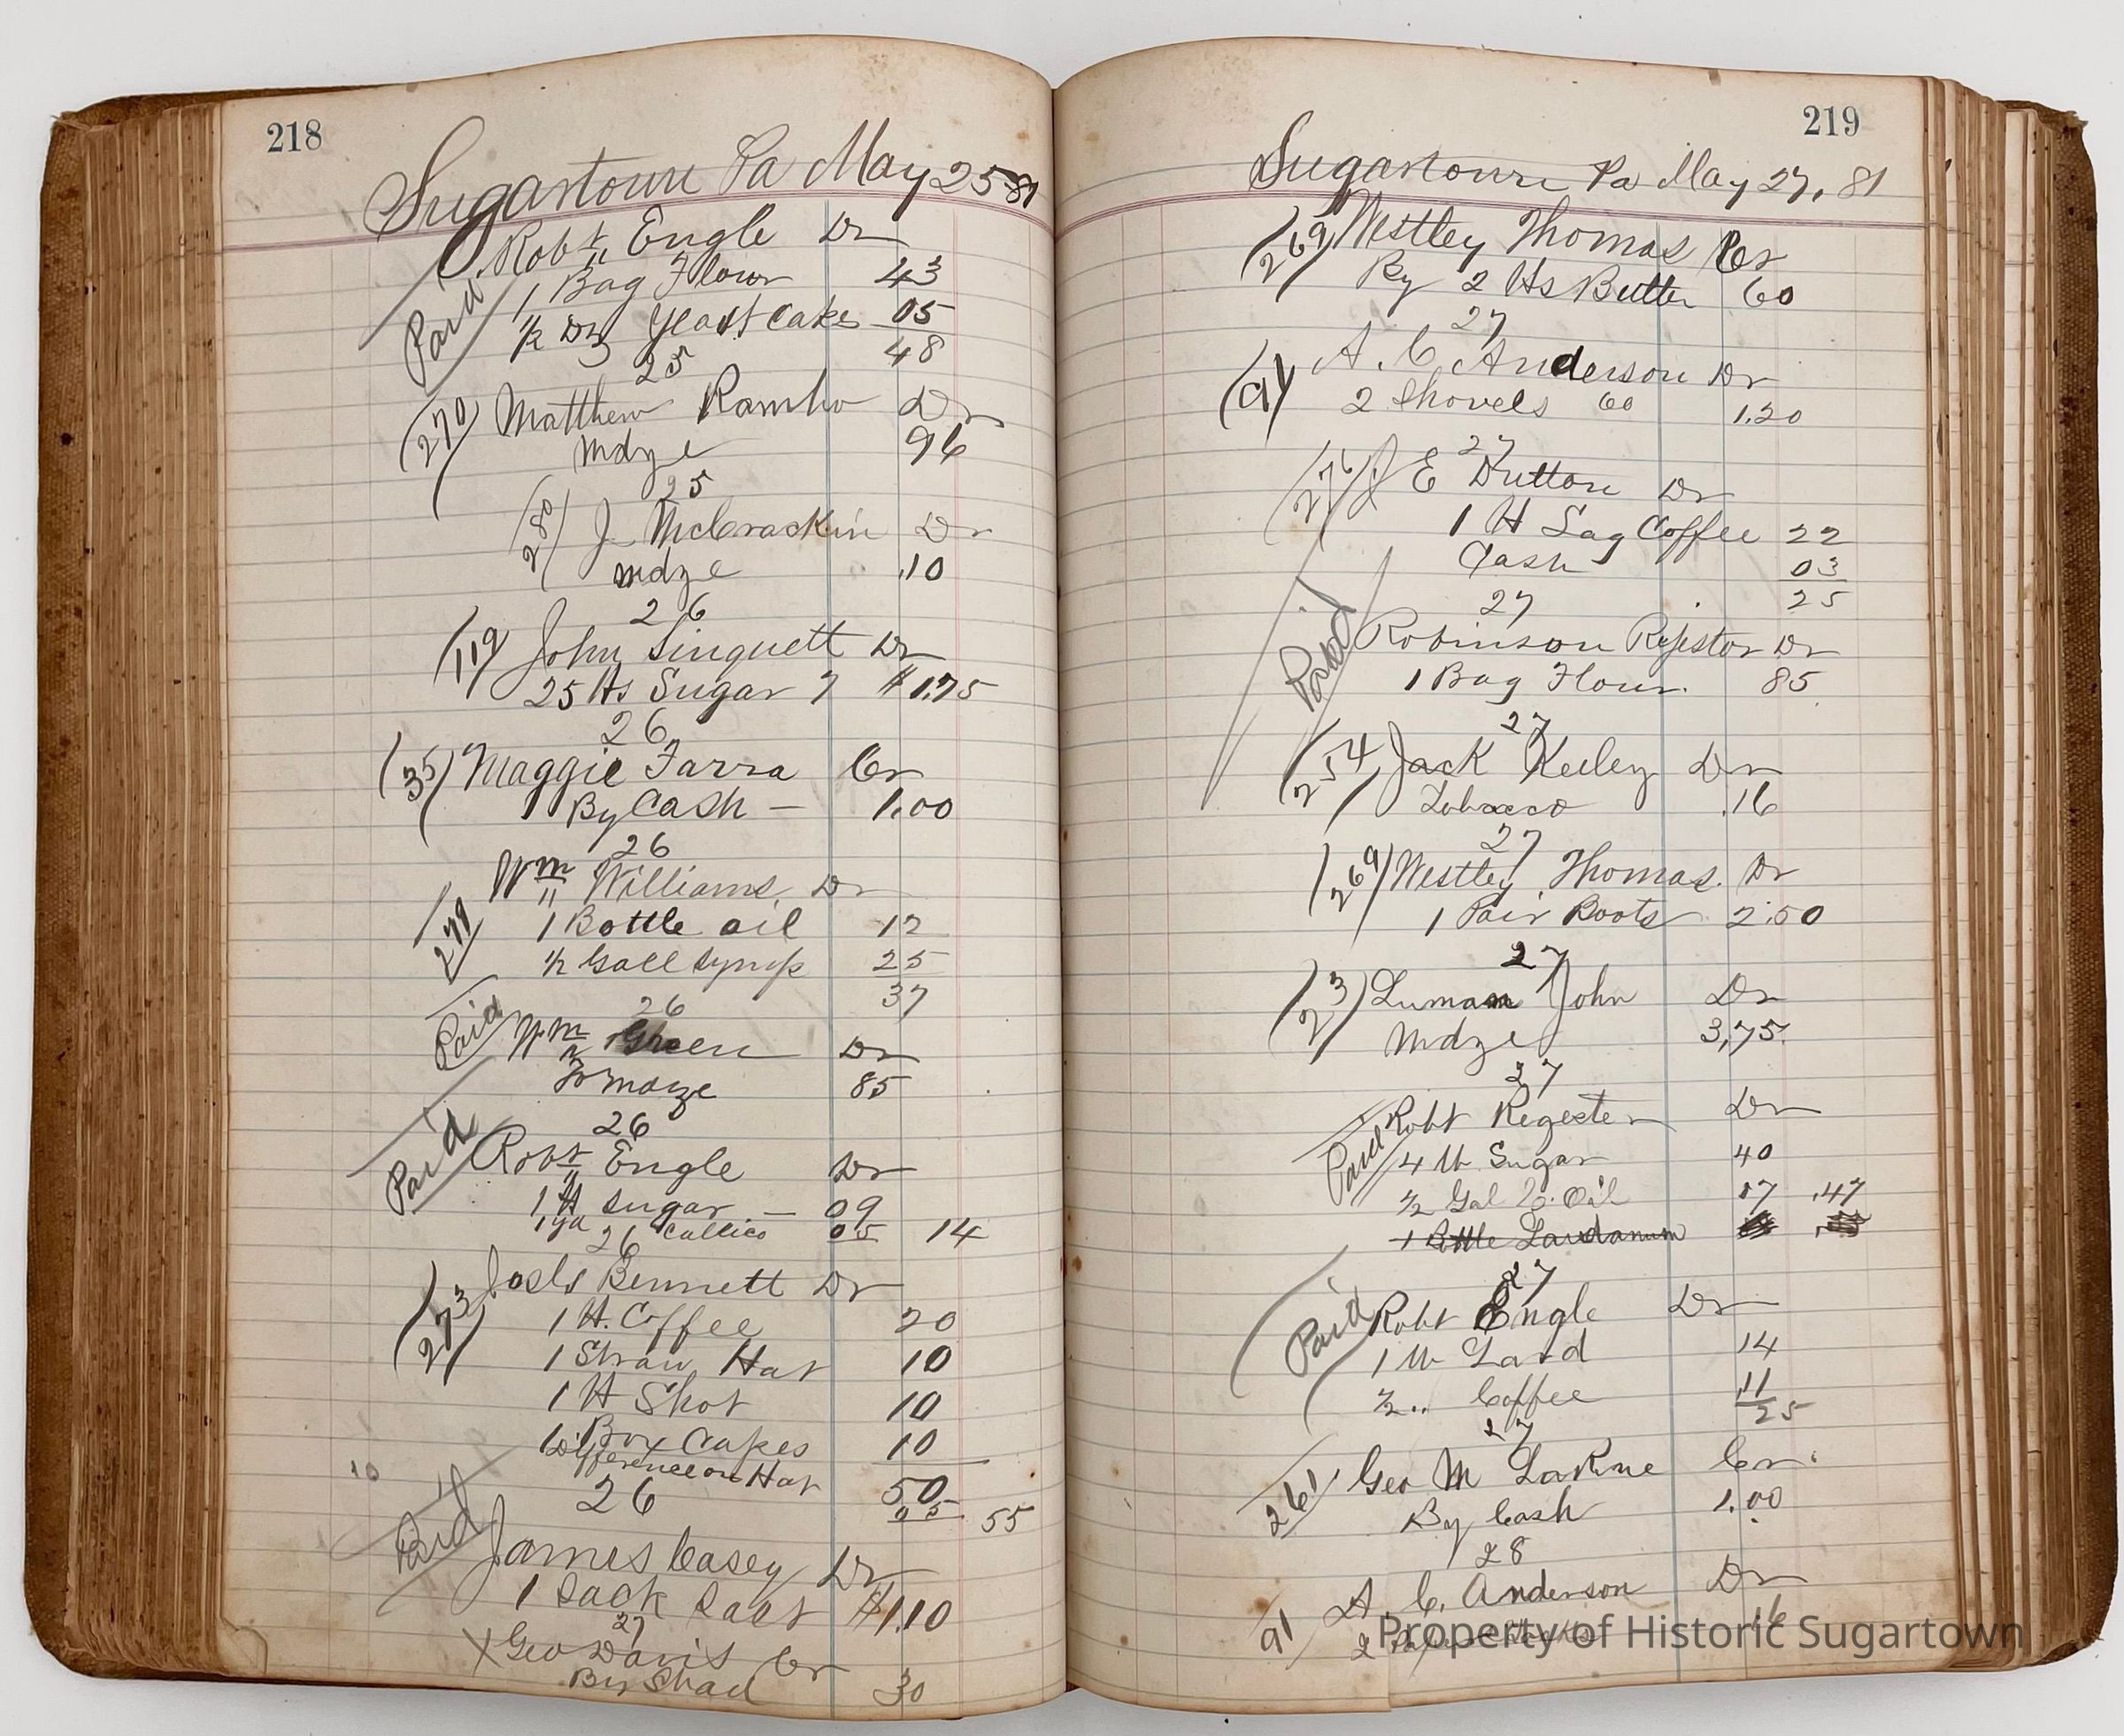 218
Sugartown Pa May 25-81
Robt Engle Dr
1 Bag Flour 43
Paid
1/2 Dz Yeast Cake 05
48
25
(270) Matthew Rambo Dr
Mdze 96
25
(280) J. McCrackin Dr
Mdze .10
26
(119) John Singuett Dr
25 lbs Sugar 7 $1.75
26
(35) Maggie Farra Cr
By Cash — 1.00
26
Wm Williams Dr
279
1 Bottle oil 12
1/2 Gall Syrup 25
37
26
Paid Wm Green Dr
To Mdze 85
26
Paid Robt Engle Dr
1 lb Sugar — 09
1 yd Callico 05 14
26
(273) Bennett Dr
1 lb. Coffee 20
1 Straw Hat 10
1 lb Shot 10
1 Box Crapes 10
Difference on Hat
10
26 50
05 55
Paid James Casey Dr
1 Sack Salt $1.10
27
X Geo Davis Cr
By Shad 30
219
Sugartown Pa May 27, 81
(269) Westley Thomas Cr
By 2 lbs Butter 60
27
(91 A. C Anderson Dr
2 Shovels 60 1.20
27
(276) J E Dutton Dr
1 lb Lag Coffee 22
Cash 03
27 25
Paid Robinson Dr
1 Bag Flour. 85
27
(254 Jack Keeley Dr
Tobacco .16
27
(269) Westley Thomas. Dr
1 Pair Boots 2.50
27
(23) Luman John Dr
Mdze 3,75
27
Paid Robt Regester Dr
4 lb Sugar 40
1/2 Gal C. Oil 17 .47
1 Bottle Laudanum
27
Paid Robt Engle Dr
1 lb Lard 14
1/2 .. Coffee 11
25
27
261 Geo M LaRue Cr
By Cash 1.00
28
91 A C. Anderson Dr
2 16
Property of Historic Sugartown